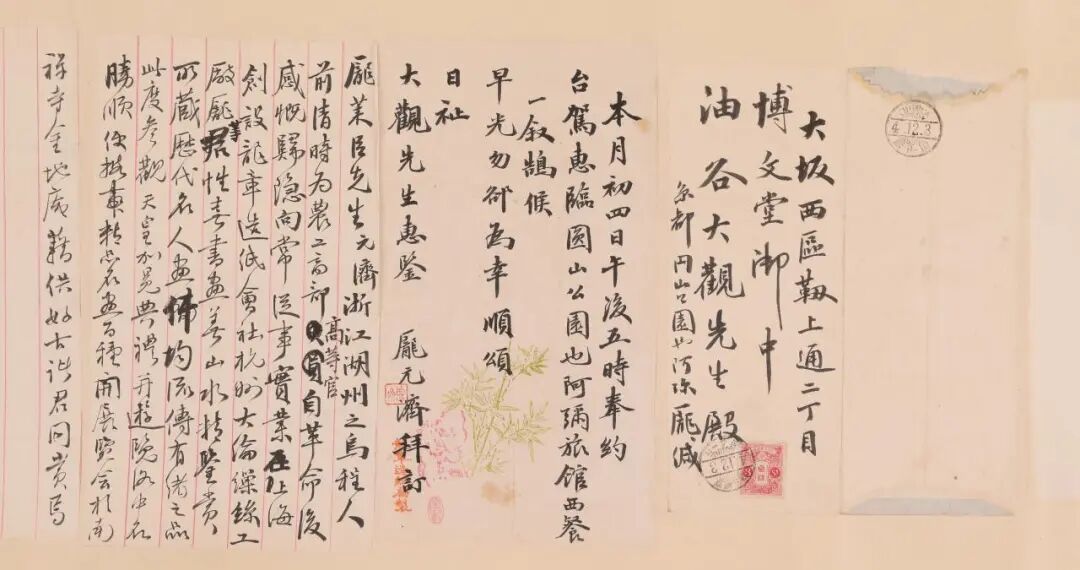 4.12.3
大坂西區靱上通二丁目
博文堂御中
油谷大觀先生殿
京都円山公園也阿弥龐緘
本月初四日午後五時奉約
台駕惠臨圓山公園也阿彌旅館西餐
一叙鵠候
早光勿卻爲幸順頌
日祉
大觀先生惠鑒 龐元濟拜訂
龐萊臣先生元濟浙江湖州之烏程人
前清時為農工商部高等官自革命後
感慨歸隱向常從事實業在上海
創設龍章造紙會社杭州大倫繰絲工
廠龐君性喜書画善山水精鑒賞
所蔵歴代名人画均流傳有緒之品
此度參觀天皇加冕典禮并遊覽洛中名
勝順便携帯精品名画百種開展覽会於南
禅寺金地蔵籍供好古諸君同賞焉